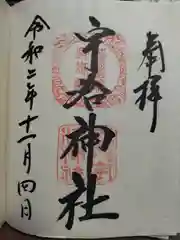 奉拝
宇治神社
令和二年十一月四日